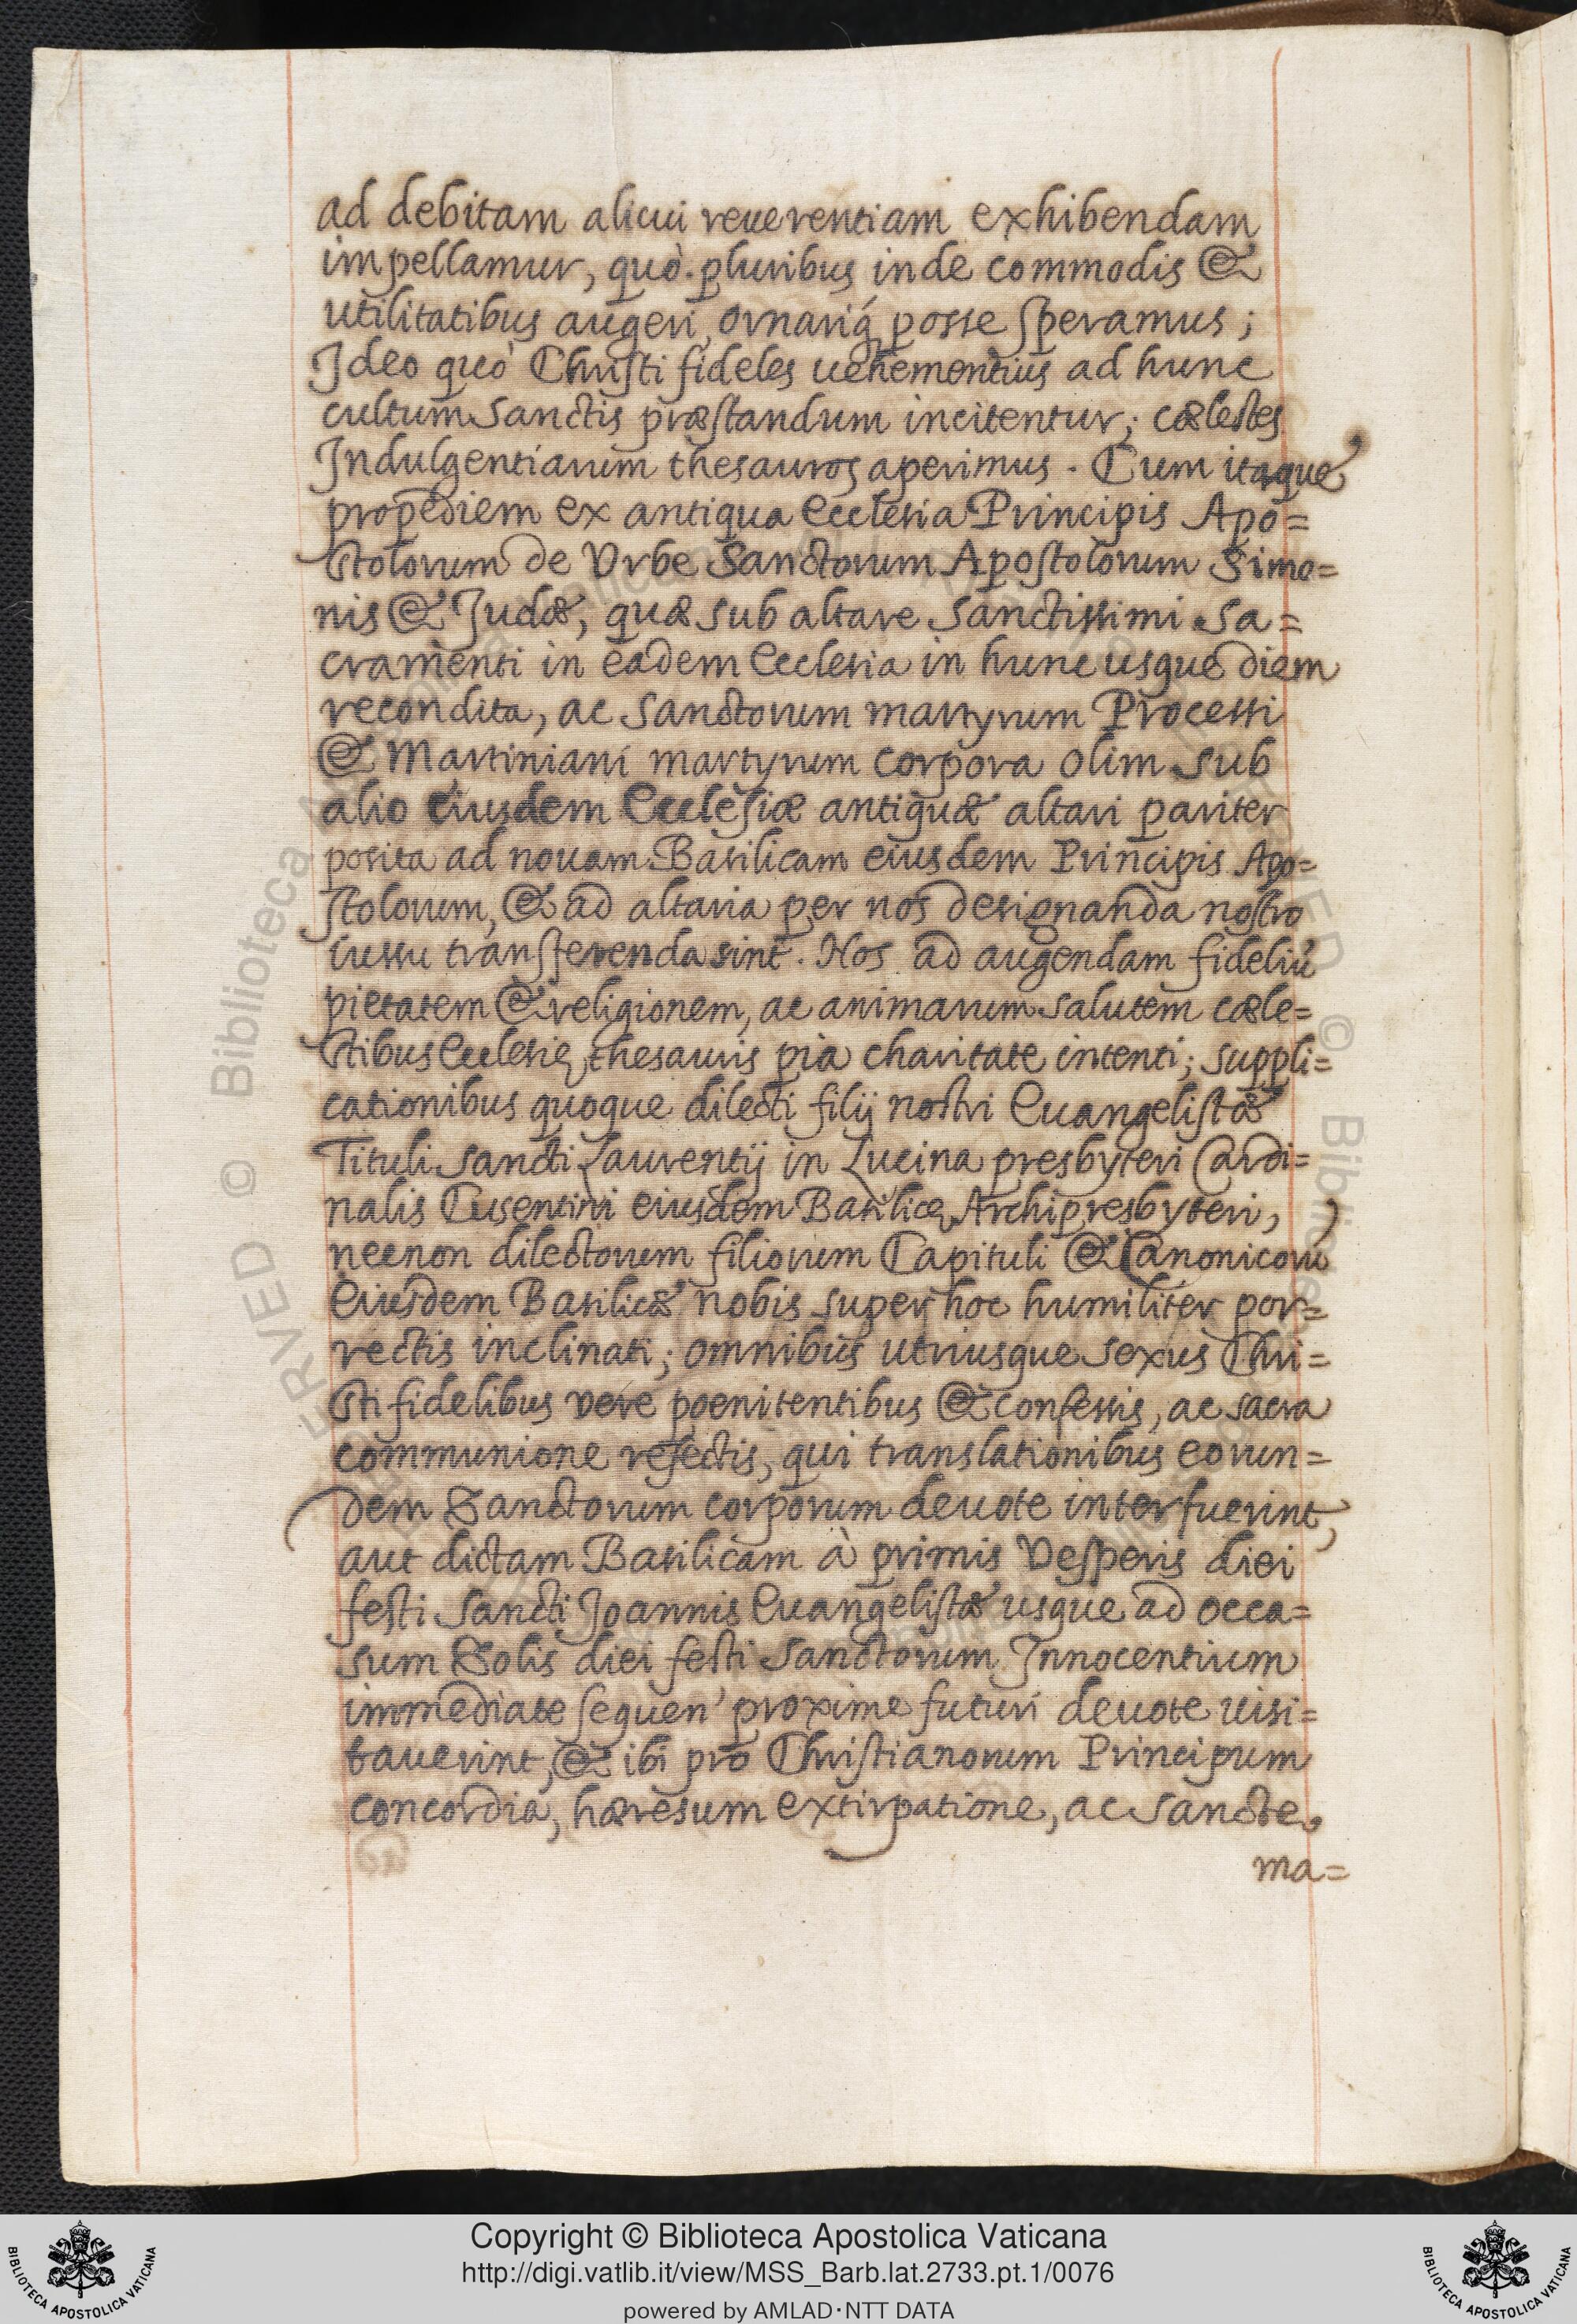 ad debitam alicui reuerentiam exhibendam
impellamur, quò pluribus inde commodis &
utilitatibus augeri, ornariq́ posse speramus;
Ideo quò Christi fideles uehementius ad hunc
cultum Sanctis præstandum incitentur; cælestes
Indulgentiarum thesauros aperimus. Cum itaque
propediem ex antiqua Ecclesia Principis Apo=
stolorum de Vrbe Sanctorum Apostolorum Simo=
nis & Judæ, quæ sub altare Sanctissimi Sa=
cramenti in eadem Ecclesia in hunc usque diem
recondita, ac Sanctorum martyrum Processi
& Martiniani martyrum corpora olim sub
alio eiusdem Ecclesiæ antiquæ altari pariter
posita ad nouam Basilicam eiusdem Principis Apo=
stolorum, & ad altaria per nos designanda nostro
iussu transferenda sint. Nos ad augendam fideliũ
pietatem & religionem, ac animarum salutem cæle=
stibus Ecclesię thesauris pia charitate intenti; suppli=
cationibus quoque dilecti filij nostri Euangelistæ
Tituli Sancti Laurentij in Lucina presbyteri Cardi=
nalis Cusentini eiusdem Basilicę Archipresbyteri,
necnon dilectorum filiorum Capituli & Canonicorũ
eiusdem Basilicæ nobis super hoc humiliter por=
rectis inclinati; omnibus utriusque sexus Chri=
sti fidelibus vere poenitentibus & confessis, ac sacra
communione refectis, qui translationibus eorun=
dem Sanctorum corporum deuote interfuerint,
aut dictam Basilicam à primis Vesperis diei
festi Sancti Joannis Euangelistæ usque ad occa=
sum Solis diei festi Sanctorum Innocentium
immediate sequen' proxime futuri deuote uisi=
tauerint, & ibi pro Christianorum Principum
concordia, hæresum extirpatione, ac Sancte
ma=
Copyright © Biblioteca Apostolica Vaticana
http://digi.vatlib.it/view/MSS_Barb.lat.2733.pt.1/0076
powered by AMLAD·NTT DATA
BIBLIOTECA APOSTOLICA VATICANA
BIBLIOTECA APOSTOLICA VATICANA